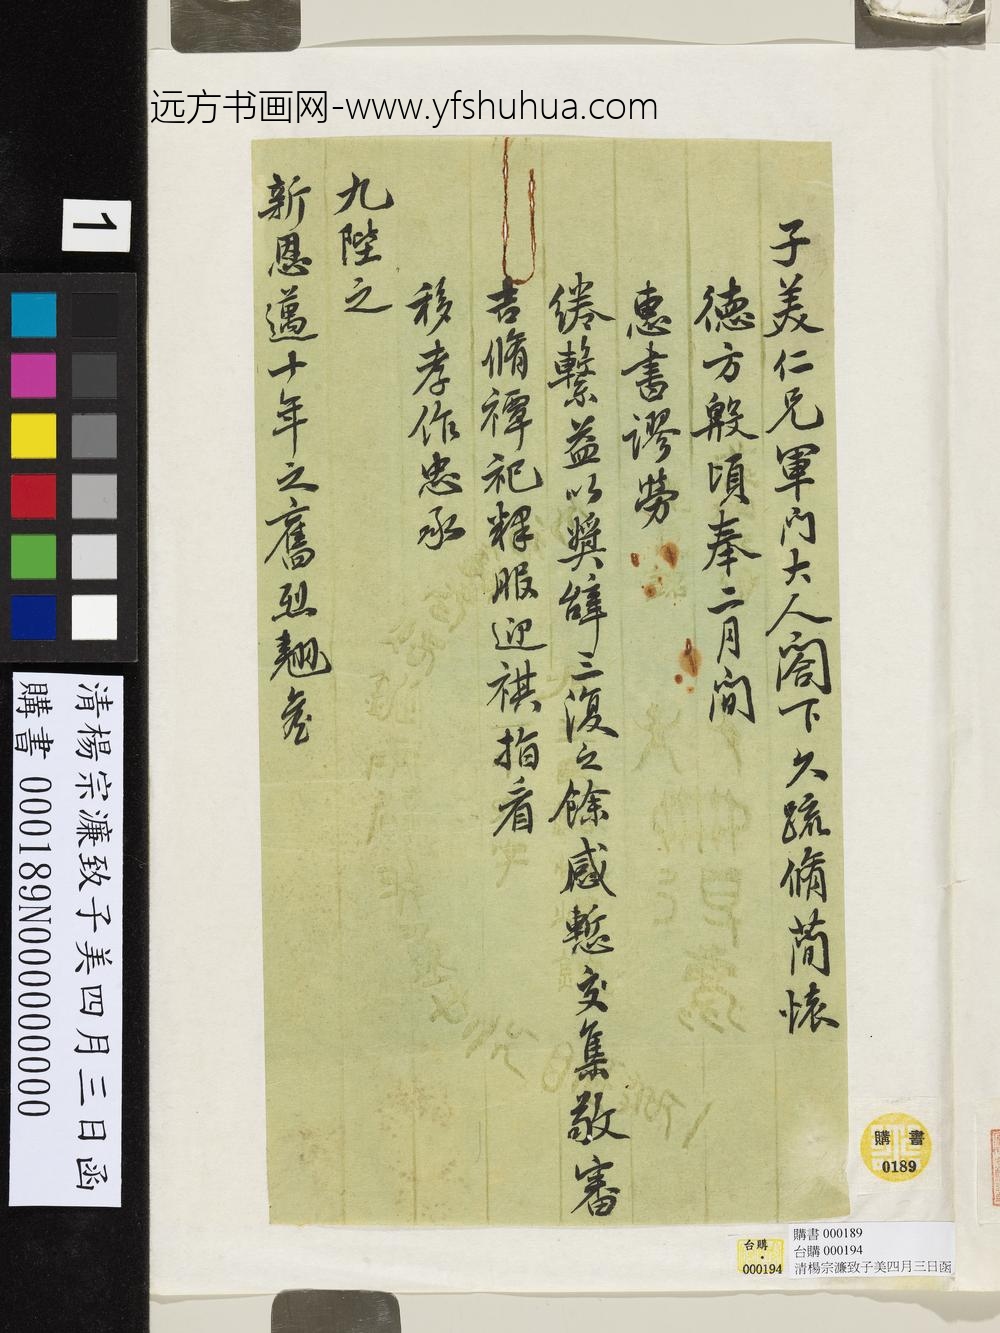 远方书画网-www.yfshuhua.com
子美仁兄軍門大人閣下久疏脩蕳懷
德方殷頃奉二月間
惠書謬勞
綣繫益以獎辭三復之餘感慙交集敬審
吉脩禫祀釋服迎祺指看
移孝作忠承
九陛之
新恩邁十年之舊烈翹詹
1
清楊宗濂致子美四月三日函
購書 000189N000000000
購書
0189
台購
000194
購書 000189
台購 000194
清楊宗濂致子美四月三日函